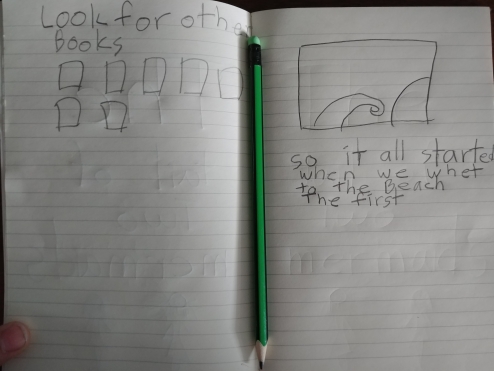 Look for other
Books
so it all started
when we whet
to the Beach
the first